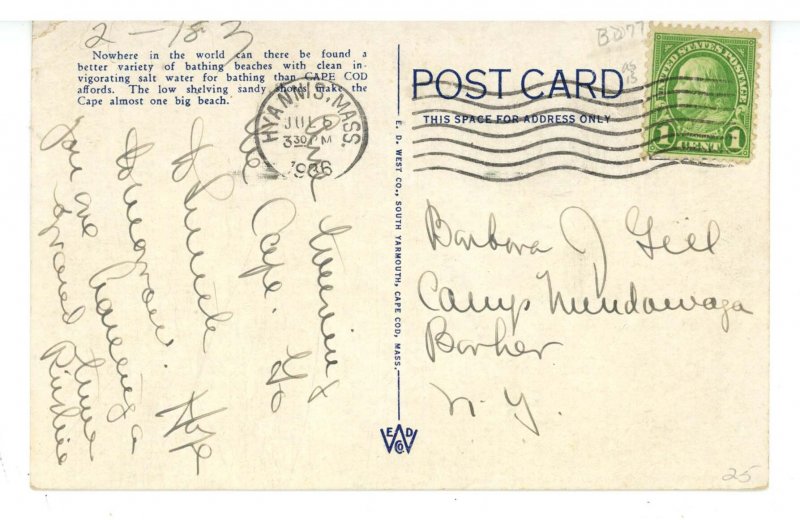 2 - 18 3
Nowhere in the world can there be found a
better variety of bathing beaches with clean in-
vigorating salt water for bathing than CAPE COD
affords. The low shelving sandy shores make the
Cape almost one big beach.
HYANNIS, MASS.
JUL 5
3 30 PM
1936
the Cape. Go
to
tomorrow. Hope
you are having a
grand time
E. D. WEST CO., SOUTH YARMOUTH, CAPE COD, MASS.
POST CARD
THIS SPACE FOR ADDRESS ONLY
UNITED STATES POSTAGE
1 CENT 1
Barbara J Gill
Camp
Barker
N. Y.
E D
W
CO
25